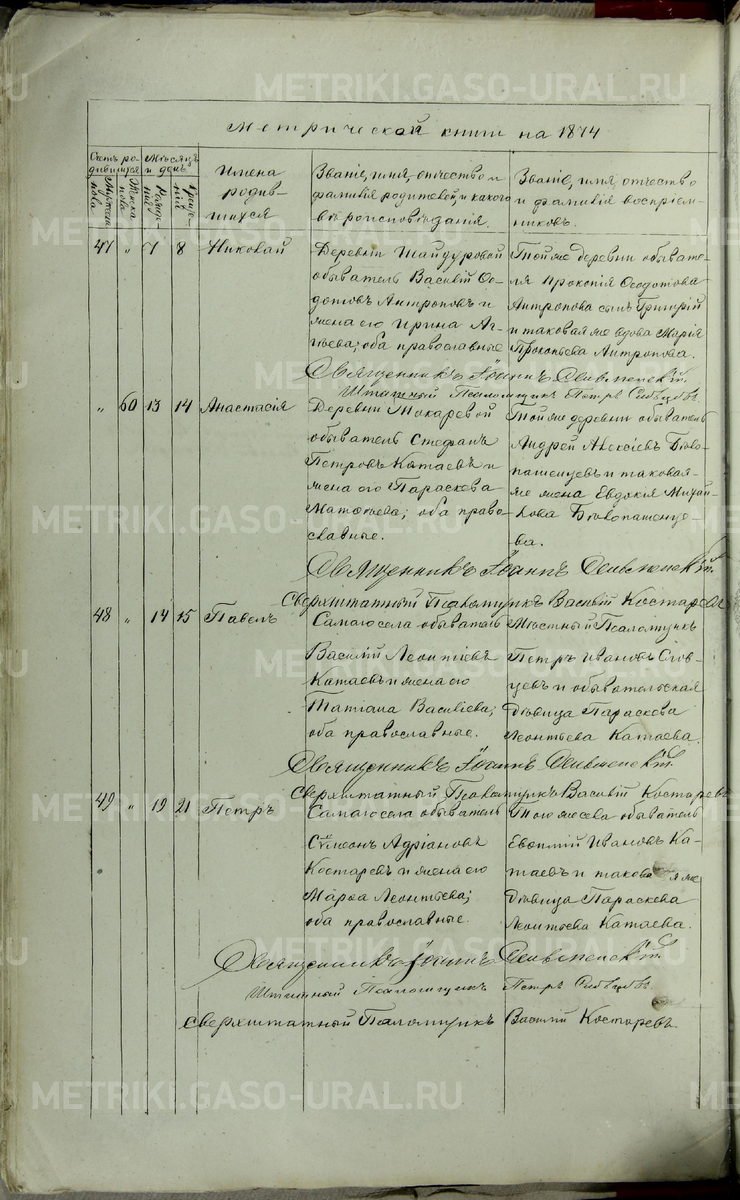 METRIKI.GASO-URAL.RU
Метрической книги на 1874
Счетъ ро-
дившихся
Мѣсяцъ
и день
Мужеска
пола
Женска
пола
Рожде-
нія
Креще-
нія
Имена
родив-
шихся
Званіе, имя, отчество и
фамилія родителей, и какого
вѣроисповѣданія.
Званіе, имя, отчество
и фамилія воспріем-
никовъ.
47 " 7 8 Николай
Деревни Шайдуровой
обыватель Василій Ѳе-
дотовъ Антроповъ и
жена его Ирина
оба православные
Той же деревни обывате-
ля Прокопія Ѳеодотова
Антропова сынъ Григорій
и таковая же вдова Марія
Прокопьева Антропова.
Священникъ Іоаннъ
Штатный Псаломщикъ Петръ Словцовъ
" 60 13 14 Анастасія
Деревни Токаревой
обыватель Стефанъ
Петровъ Катаевъ и
жена его Параскева
Матѳіева; оба право-
славные.
Той же деревни обыватель
Андрей Алексіевъ Бѣло-
пашенцевъ и таковая-
же жена Евдокія Михай-
лова Бѣлопашенце-
ва.
Священникъ Іоаннъ
Сверхштатный Псаломщикъ Василій Костаревъ
48 " 14 15 Павелъ
Самаго села обыватель
Василій Леонтіевъ
Катаевъ и жена его
Татіана Василіева;
оба православные.
Мѣстный Псаломщикъ
Петръ Ивановъ Слов-
цевъ и обывательская
дѣвица Параскева
Леонтьева Катаева.
Священникъ Іоаннъ
Сверхштатный Псаломщикъ Василій Костаревъ
49 " 19 21 Петръ
Самаго села обыватель
Сѵмеонъ Адріановъ
Костаревъ и жена его
Марѳа Леонтьева;
оба православные.
Того же села обыватель
Евѳимій Ивановъ Ка-
таевъ и таковая же
дѣвица Параскева
Леонтьева Катаева.
Священникъ Іоаннъ
Штатный Псаломщикъ Петръ Словцовъ
Сверхштатный Псаломщикъ Василій Костаревъ.